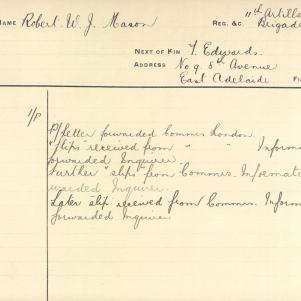 NAME Robert W. J. Mason REG. &C. 11th Artiller
Brigade
NEXT OF KIN F. Edwards.
ADDRESS No 9 8th Avenue
East Adelaide
1/P P/Letter forwarded Commrs London.
"slip" received from " " Informa
forwarded Inquirer.
Further "slips" from Commrs. Informat
warded Inquirer.
Later slip received from Commrs. Inform
forwarded Inquirer